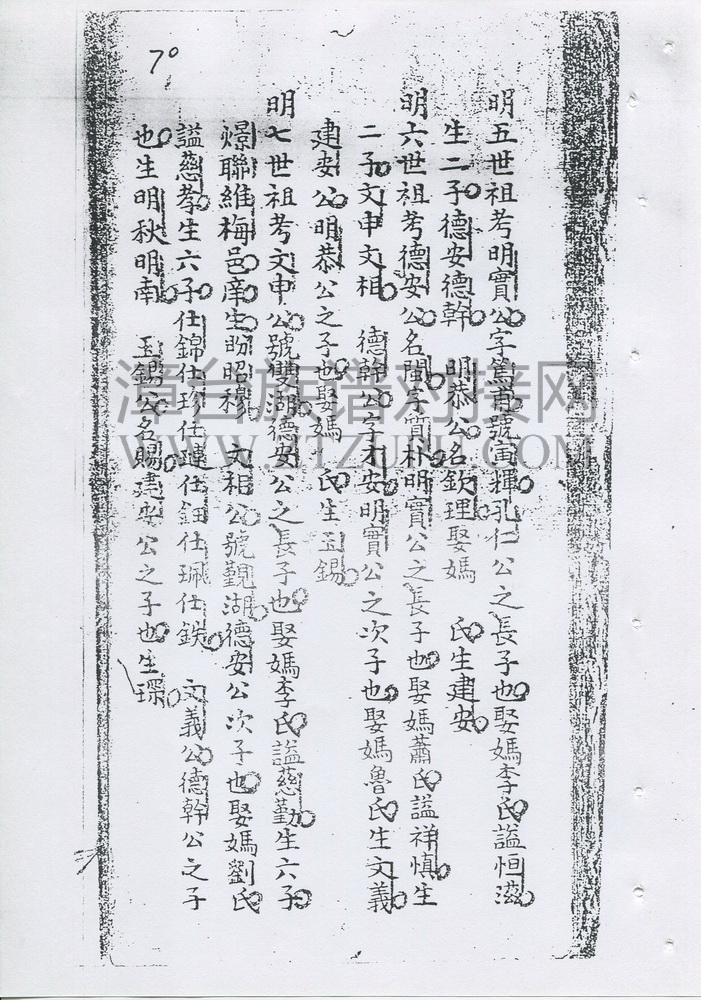 70
明五世祖考明實公字篤甫號寅輝孔仁公之長子也娶媽李氏謚恒滋
生二子德安德幹 明恭公名欽理娶媽 氏生建安
明六世祖考德安公名閏字質朴明實公之長子也娶媽蕭氏謚祥慎生
二子文申文相 德幹公字才安明實公之次子也娶媽魯氏生文義
建安公明恭公之子也娶媽 氏生玉錫
明七世祖考文申公號雙湖德安公之長子也娶媽李氏謚慈勤生六子
燝聯維梅邑庠生盼昭穆 文相公號觐湖德安公次子也娶媽劉氏
謚慈孝生六子仕錦仕珍仕璉仕鈺仕珮仕鉄 文義公德幹公之子
也生明秋明南 玉錫公名賜建安公之子也生琛
漳台族谱对接网
WWW.ZTZUPU.COM